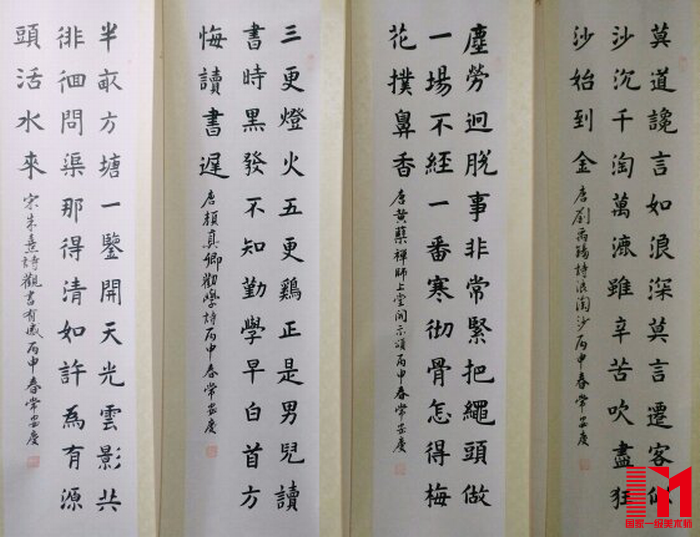 莫道讒言如浪深莫言遷客似
沙沉千淘萬漉雖辛苦吹盡狂
沙始到金
唐劉禹錫詩浪淘沙丙申春常安慶
塵勞迥脫事非常緊把繩頭做
一場不經一番寒彻骨怎得梅
花撲鼻香
唐黃蘗禪師上堂開示頌丙申春常安慶
三更燈火五更鷄正是男兒讀
書時黑發不知勤學早白首方
悔讀書遲
唐顏真卿勸學詩丙申春常安慶
半畝方塘一鑒開天光雲影共
徘徊問渠那得清如許為有源
頭活水來
宋朱熹詩觀書有感丙申春常安慶
国家一级美术师